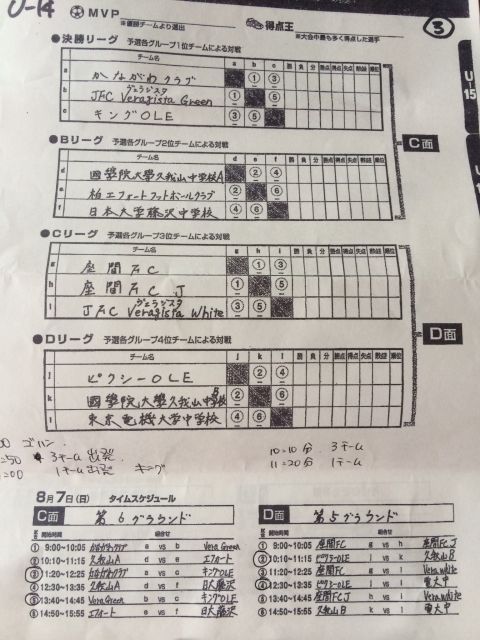 U-14
⚽MVP
※優勝チームより選出
得点王
※大会中最も多く得点した選手
③
U
15
●決勝リーグ 予選各グループ1位チームによる対戦
チーム名 a b c 勝 負 分 勝点 得点 失点 得失 順位
a かながわクラブ ① ③
b JFC Veragista Green ヴェラジスタ ① ⑤
c キングOLE ③ ⑤
C面
●Bリーグ 予選各グループ2位チームによる対戦
チーム名 d e f 勝 負 分 勝点 得点 失点 得失 順位
d 國學院大學久我山中学校A ② ④
e 柏エフォートフットボールクラブ ② ⑥
f 日本大学藤沢中学校 ④ ⑥
●Cリーグ 予選各グループ3位チームによる対戦
チーム名 g h i 勝 負 分 勝点 得点 失点 得失 順位
g 座間FC ① ③
h 座間FC J ① ⑤
i JFC Veragista White ヴェラジスタ ③ ⑤
D面
●Dリーグ 予選各グループ4位チームによる対戦
チーム名 j k l 勝 負 分 勝点 得点 失点 得失 順位
j ピクシーOLE ② ④
k 國學院大學久我山中学校B ② ⑥
l 東京電機大学中学校 ④ ⑥
00 ゴハン.
=50 3チーム出発.
=00 1チーム出発 キング
10=10分 3チーム
11=20分 1チーム
8月7日(日) タイムスケジュール
C面 第6グラウンド
開始時間 組合せ
① 9:00~10:05 かながわクラブ a vs b Vera Green
② 10:10~11:15 久我山A d vs e エフォート
③ 11:20~12:25 かながわクラブ a vs c キングOLE
④ 12:30~13:35 久我山A d vs f 日大藤沢
⑤ 13:40~14:45 Vera Green b vs c キングOLE
⑥ 14:50~15:55 エフォート e vs f 日大藤沢
D面 第5グラウンド
開始時間 組合せ
① 9:00~10:05 座間FC g vs h 座間FC J
② 10:10~11:15 ピクシーOLE j vs k 久我山B
③ 11:20~12:25 座間FC g vs i Vera white
④ 12:30~13:35 ピクシーOLE j vs l 電大中
⑤ 13:40~14:45 座間FC J h vs i Vera white
⑥ 14:50~15:55 久我山B k vs l 電大中